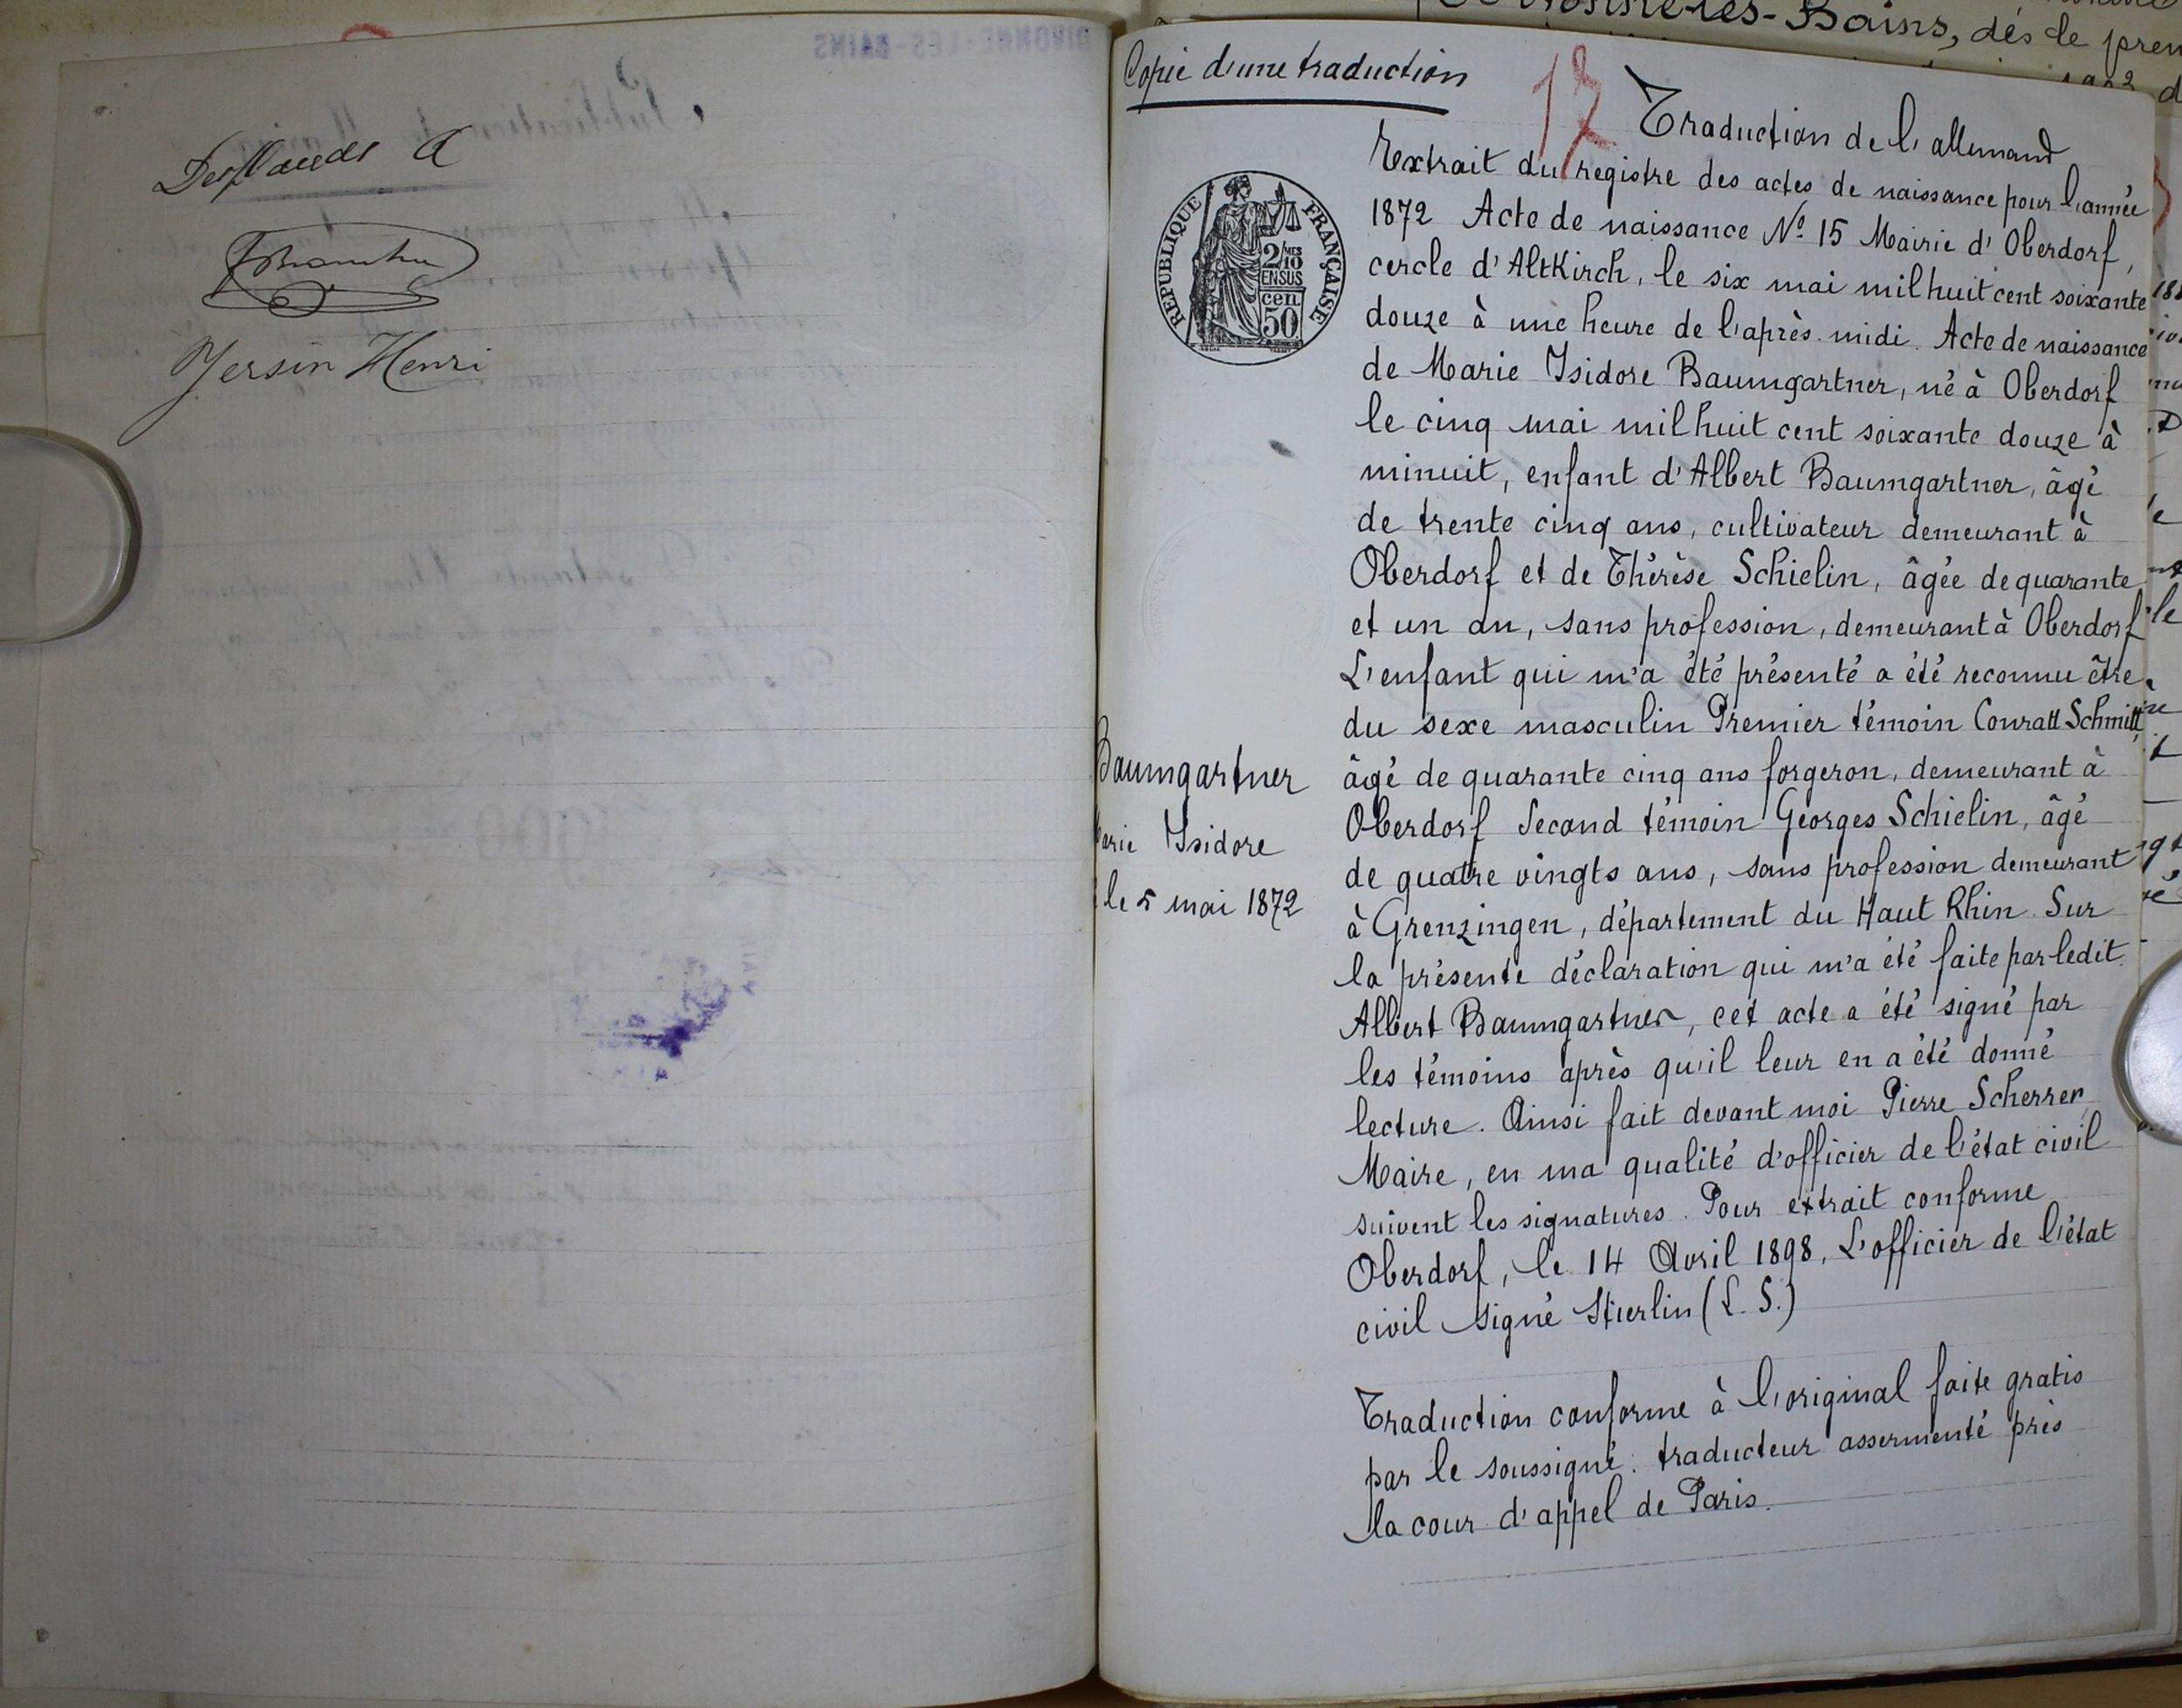 Yersin Henri
Copie d'une traduction
17
Traduction de l'allemand
Extrait du registre des actes de naissance pour l'année
1872 Acte de naissance No 15 Mairie d'Oberdorf,
cercle d'AltKirch, le six mai mil huit cent soixante
douze à une heure de l'après-midi. Acte de naissance
de Marie Isidore Baumgartner, né à Oberdorf
le cinq mai mil huit cent soixante douze à
minuit, enfant d'Albert Baumgartner, âgé
de trente cinq ans, cultivateur demeurant à
Oberdorf et de Thérèse Schielin, âgée de quarante
et un an, sans profession, demeurant à Oberdorf
L'enfant qui m'a été présenté a été reconnu être
du sexe masculin Premier témoin Conratt Schmitt,
âgé de quarante cinq ans forgeron, demeurant à
Oberdorf Second témoin Georges Schielin, âgé
de quatre vingts ans, sans profession demeurant
à Grenzingen, département du Haut Rhin Sur
la présente déclaration qui m'a été faite par ledit
Albert Baumgartner, cet acte a été signé par
les témoins après qu'il leur en a été donné
lecture. Ainsi fait devant moi Pierre Scherrer,
Maire, en ma qualité d'officier de l'état civil
suivent les signatures. Pour extrait conforme
Oberdorf, le 14 Avril 1898, L'officier de l'état
civil signé Stierlin (L. S.)
Traduction conforme à l'original faite gratis
par le soussigné: traducteur assermenté près
la cour d'appel de Paris.
Baumgartner
Isidore
le 5 mai 1872
RÉPUBLIQUE FRANÇAISE
2/10
EN SUS
cen
50
-les-Bains, dès le